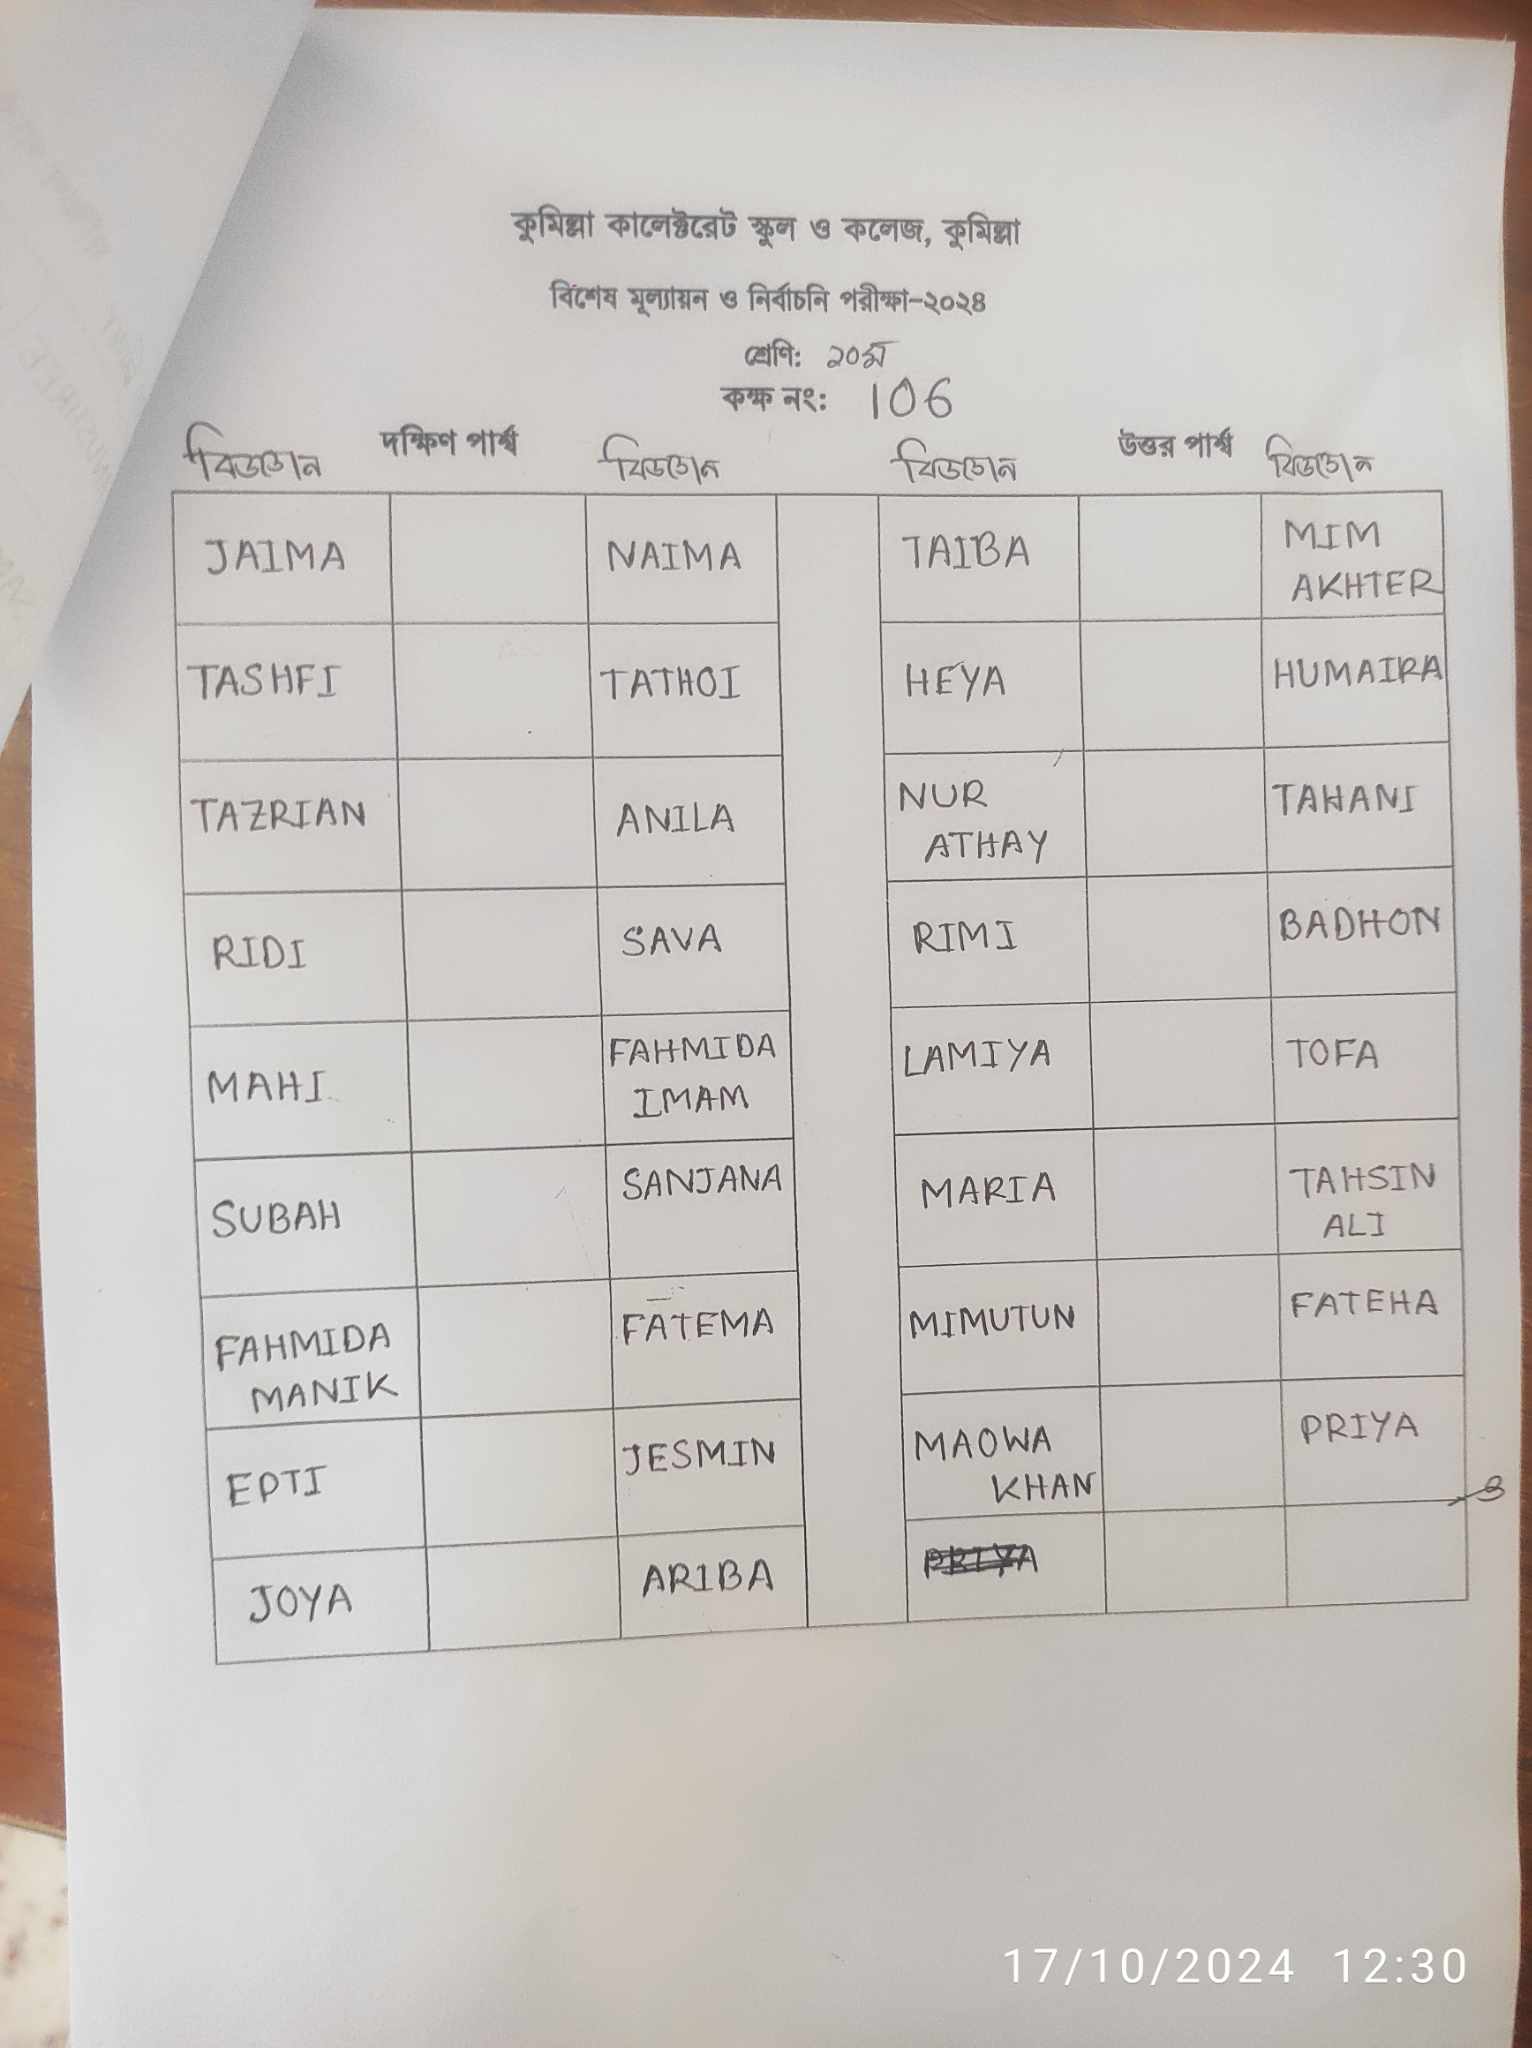 কুমিল্লা কালেক্টরেট স্কুল ও কলেজ, কুমিল্লা
বিশেষ মূল্যায়ন ও নির্বাচনি পরীক্ষা-২০২৪
শ্রেণি: ১০ম
কক্ষ নং: 106
দক্ষিণ পার্শ্ব উত্তর পার্শ্ব
JAIMA NAIMA TAIBA MIM
AKHTER
TASHFI TATHOI HEYA HUMAIRA
TAZRIAN ANILA NUR TAHANI
ATHAY
RIDI SAVA RIMI BADHON
MAHI FAHMIDA LAMIYA TOFA
IMAM
SUBAH SANJANA MARIA TAHSIN
ALI
FAHMIDA FATEMA MIMUTUN FATEHA
MANIK
EPTI JESMIN MAOWA PRIYA
KHAN
JOYA ARIBA PRIYA
17/10/2024 12:30